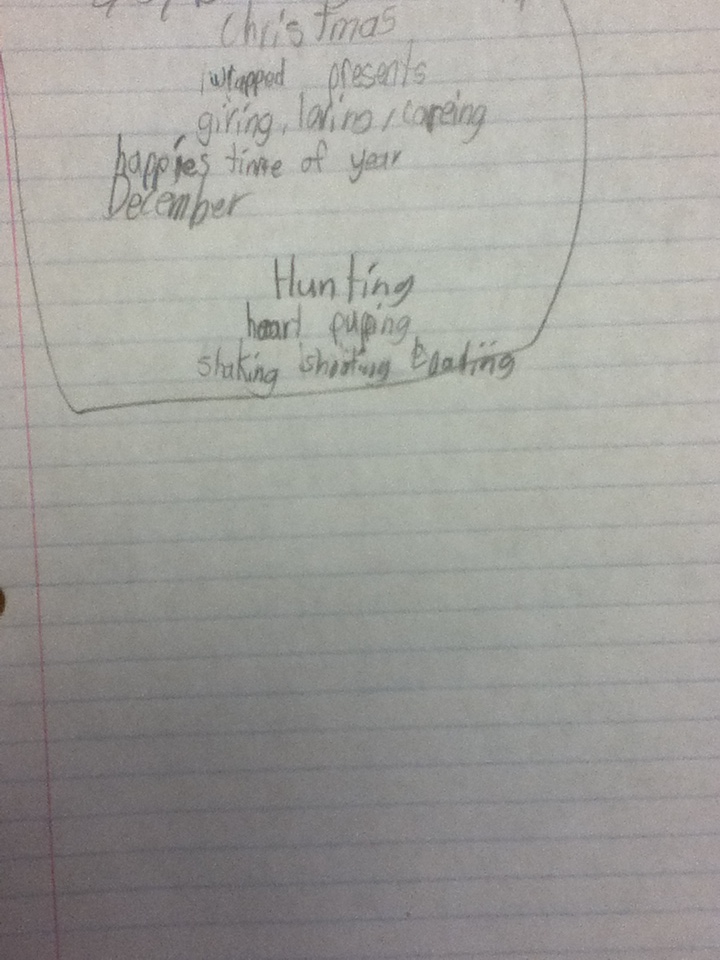 Christmas
wrapped presents
giving, loving, careing
happies time of year
December
Hunting
heart puping
shaking shooting